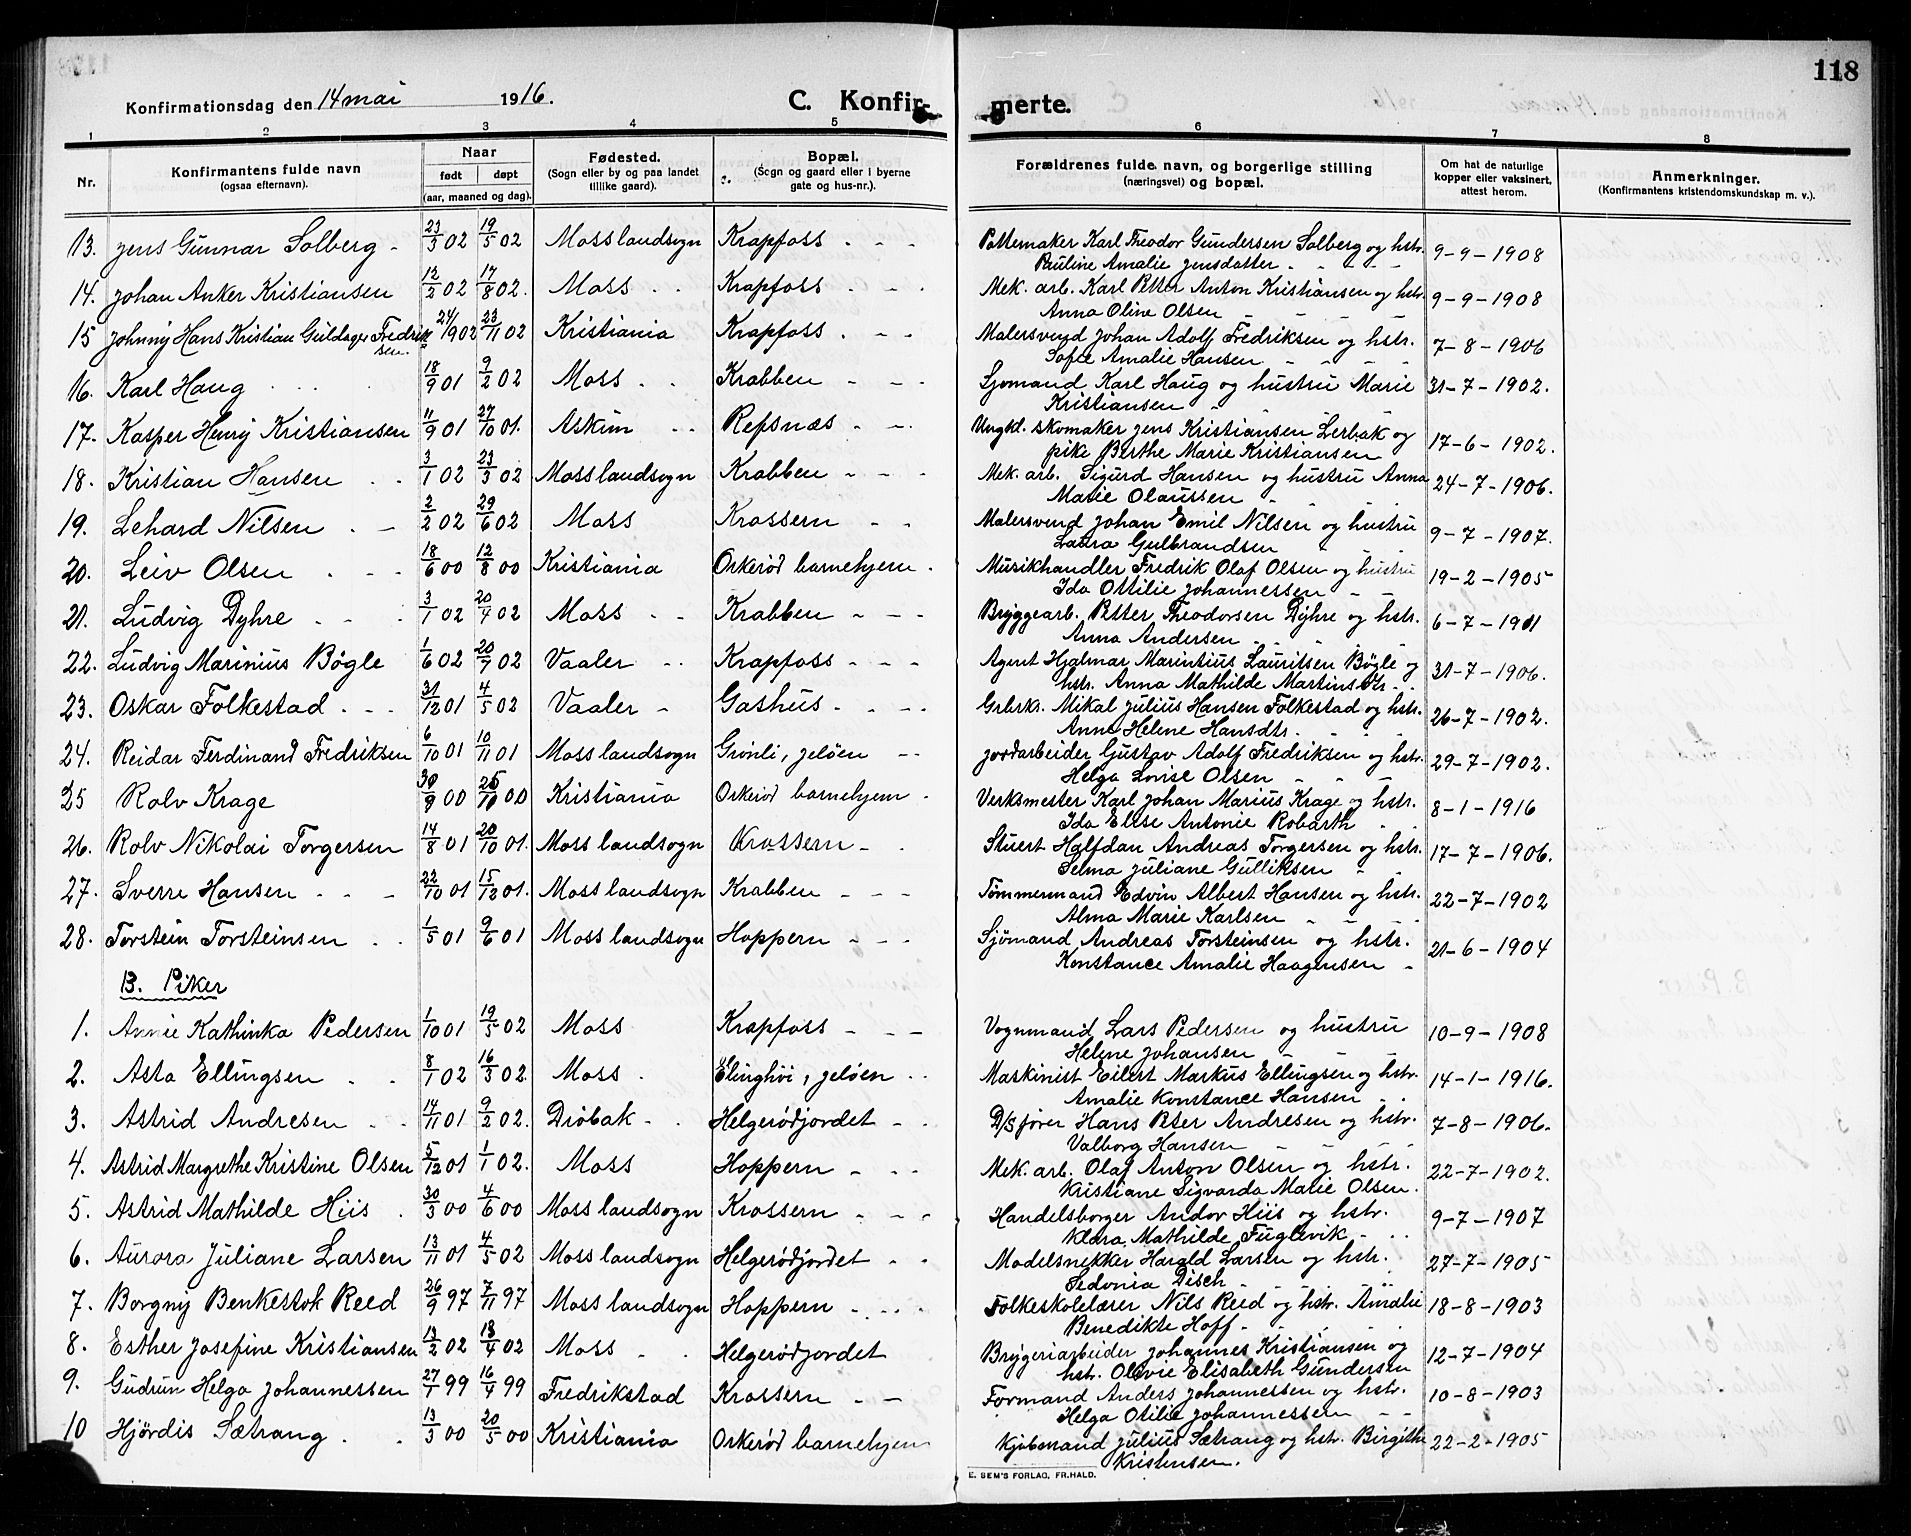 118
Konfirmationsdag den 14 mai 1916. C. Konfirmerte.
1 2 3 4 5 6 7 8
Nr. Konfirmantens fulde navn (ogsaa efternavn). Naar født døpt (aar, maaned og dag). Fødested. (Sogn eller by og paa landet tillike gaard). Bopæl. (Sogn og gaard eller i byerne gate og hus-nr.). Forældrenes fulde navn, og borgerlige stilling (næringsvei) og bopæl. Om hat de naturlige kopper eller vaksinert, attest herom. Anmerkninger. (Konfirmantens kristendomskundskap m. v.).
13. Jens Gunnar Solberg - 23/3 02 19/5 02 Moss landsogn Krapfoss - - - Pottemaker Karl Theodor Gundersen Solberg og hstr. 9-9-1908
Pauline Amalie Jensdatter - - - -
14. Johan Anker Kristiansen 12/2 02 17/8 02. Moss - - Krapfoss - - - Mek. arb. Karl Petter Anton Kristiansen og hstr. 9-9-1908
Anna Oline Olsen - - - -
15 Johnny Hans Kristian Guldager Fredriksen. 24/9 02 23/11 02 Kristiania Krapfoss - - - Malersvend Johan Adolf Fredriksen og hstr. 7-8-1906
Sofie Amalie Hansen - - - -
16. Karl Haug - - - 18/9 01 9/2 02 Moss - - Krabben - - - Sjomand Karl Haug og hustru Marie 31-7-1902.
Kristiansen - - - -
17. Kasper Henry Kristiansen 11/9 01 27/10 01. Askim - - Refsnæs - - - Ungkl. skomaker Jens Kristiansen Lerbak og 17-6-1902.
pike Berthe Marie Kristiansen
18. Kristian Hansen - - 3/1 02 23/3 02 Moss landsogn Krabben - - - Mek. arb. Sigurd Hansen og hustru Anna 24-7-1906.
Marie Olaussen - -
19. Lehard Nilsen - - 2/2 02 29/6 02 Moss Krossern - - Malersvend Johan Emil Nilsen og hustru 9-7-1907.
Laura Gulbrandsen - -
20. Leiv Olsen - - - 18/6 00 12/8 00 Kristiania Orkerød barnehjem - Musikhandler Fredrik Olaf Olsen og hustru 19-2-1905
Ida Ottilie Johannessen - -
21. Ludvig Dyhre - - - 3/1 02 20/4 02 Moss - - Krabben - - - Bryggearb. Petter Theodorsen Dyhre og hstr. 6-7-1911
Anna Andersen - - - -
22. Ludvig Marinius Bøgle 1/6 02 20/7 02 Vaaler - - Krapfoss - - - Agent Hjalmar Marintius Lauritsen Bøgle og 31-7-1906.
hstr. Anna Mathilde Martinsdtr. - -
23. Oskar Folkestad - - - 31/12 01 4/5 02 Vaaler - Gashus - - - - Grbrkr. Mikal Julius Hansen Folkestad og hstr. 26-7-1902.
Anne Helene Hansdtr. - - - -
24. Reidar Ferdinand Fredriksen 6/10 01 10/11 01 Moss landsogn Grønli, Jeløen - - Jordarbeider Gustav Adolf Fredriksen og hstr. 29-7-1902.
Helga Lovise Olsen - - - -
25 Rolv Krage 30/9 00 26/10 00 Kristiania Orkerød barnehjem - Verksmester Karl Johan Marius Krage og hstr. 8-1-1916
Ida Elise Antonie Robarth - -
26. Rolv Nikolai Torgersen 14/8 01 20/10 01. Moss landsogn Krossern - - Stuert Halfdan Andreas Torgersen og hstr. 17-7-1906.
Selma Juliane Gulliksen - -
27. Sverre Hansen - - - 22/10 01 15/12 01. Moss landsogn Krabben - - - Tømmermand Edvin Albert Hansen og hstr. 22-7-1902
Alma Marie Karlsen - - - -
28. Torstein Torsteinsen - - 1/5 01 9/6 01 Moss landsogn Hoppern - - - Sjømand Andreas Torsteinsen og hstr. 21-6-1904
Konstance Amalie Haagensen -
B. Piker
1. Annie Kathinka Pedersen 1/10 01 19/5 02 Moss Krapfoss - - - Vognmand Lars Pedersen og hustru 10-9-1908
Helene Johansen
2. Asta Ellingsen - - 8/1 02 16/3 02. Moss - Elinghöi, Jeløen - - Maskinist Eilert Markus Ellingsen og hstr. 14-1-1916.
Amalie Konstance Hansen - -
3. Astrid Andresen - - 14/11 01 9/2 02. Drøbak - - Helgerødjordet - - D/S fører Hans Peter Andresen og hstr. 7-8-1906.
Valborg Hansen - - - -
4. Astrid Margrethe Kristine Olsen 5/12 01 1/1 02. Moss Hoppern - - - Mek. arb. Olaf Anton Olsen og hstr. 22-7-1902.
Kristiane Sigvarda Marie Olsen.
5. Astrid Mathilde Hiis - 30/3 00 4/6 00 Moss landsogn Krossern - - - Handelsborger Andor Hiis og hstr. 9-7-1907
Klara Mathilde Fuglevik - - -
6. Aurora Juliane Larsen 13/11 01 4/5 02 Moss landsogn Helgerødjordet - - Modelsnekker Harald Larsen og hstr. 27-7-1905
Sedonia Disch - - - -
7. Borgny Benkestok Reed 26/9 97 7/11 97 Moss landsogn Hoppern - - - Folkeskolelærer Nils Reed og hstr. Amalie 18-8-1903
Benedikte Hoff - - - -
8. Esther Josefine Kristiansen 13/2 02 13/4 02 Moss - - Helgerødjordet Brygeriarbeider Johannes Kristiansen og 12-7-1904
hstr. Olevie Elisabeth Gundersen
9. Gudrun Helga Johannessen 27/1 99 16/4 99 Fredrikstad Krossern - - Formand Anders Johannessen og hstr. 10-8-1903
Helga Otilie Johannessen - -
10 Hjørdis Sætrang - - 13/3 00 20/5 00 Kristiania Orkerød barnehjem Kjøbmand Julius Sætrang og hstr. Birgithe 22-2-1905
Kristensen.
E. SEM'S FORLAG, FR.HALD.